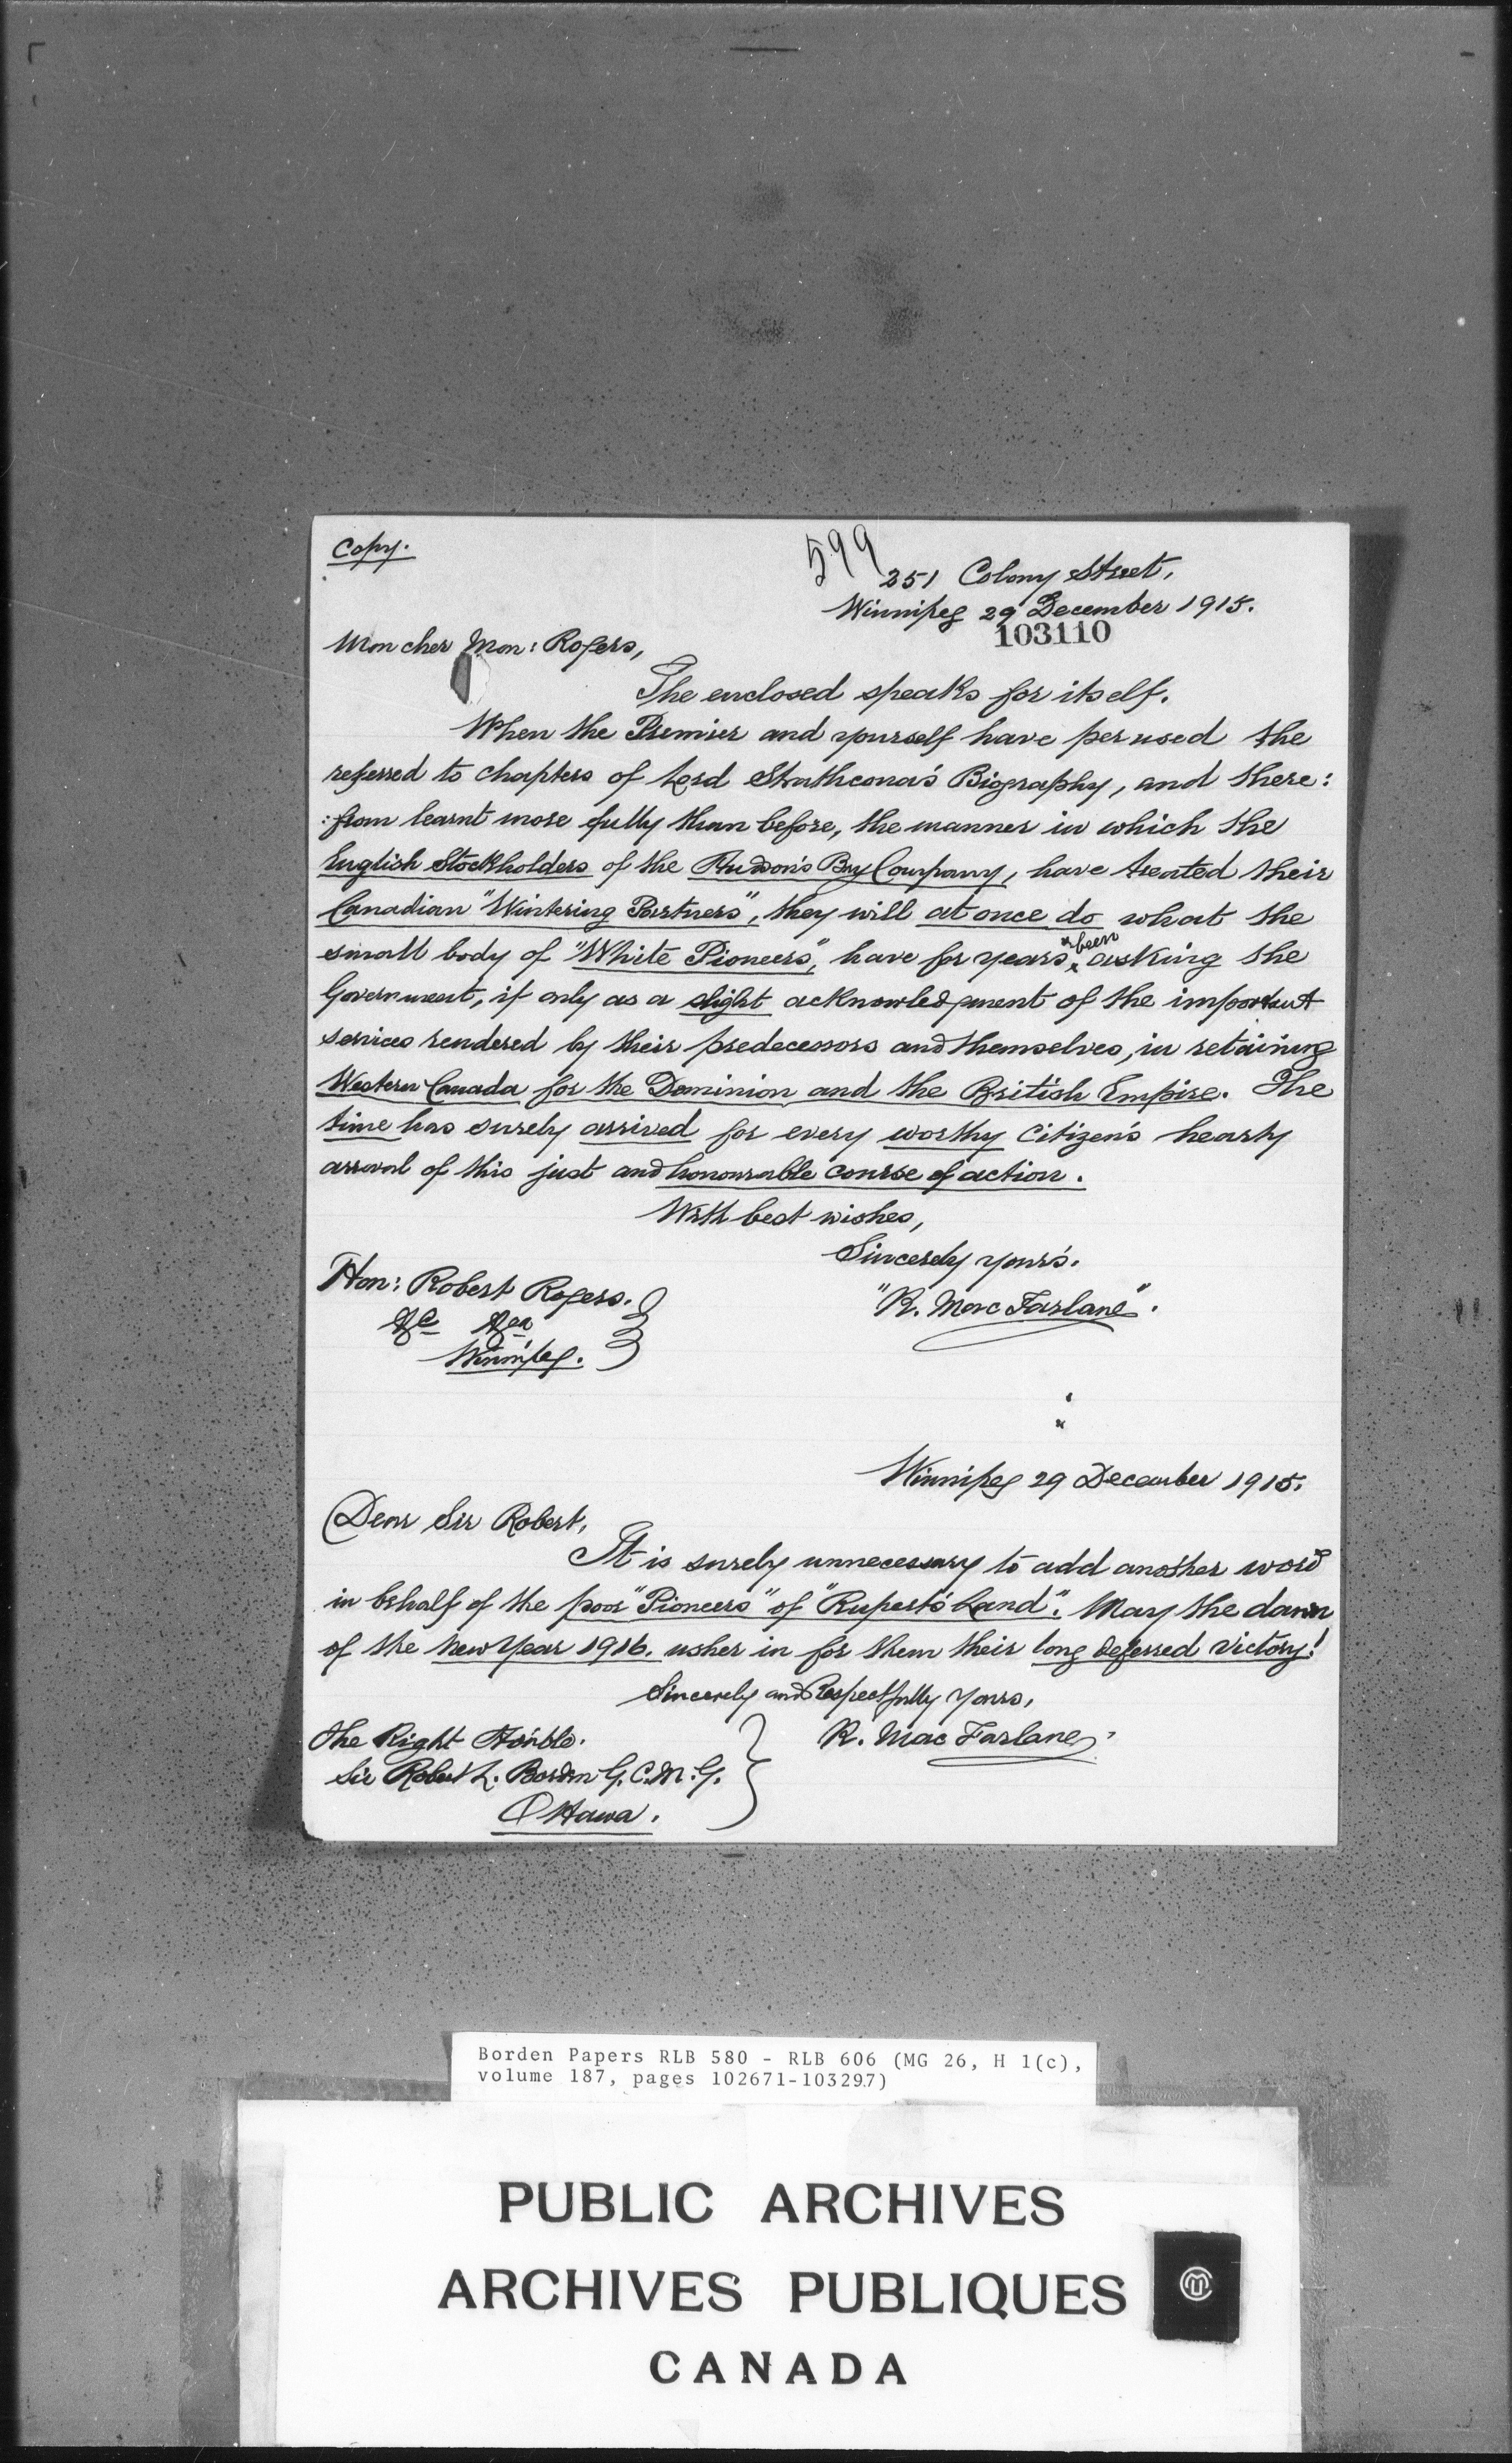 Copy.
599
251 Colony Street,
Winnipeg 29 December 1915.
103110
Mon cher Mon: Rogers,
The enclosed speaks for itself.
When the Premier and yourself have perused the
referred to chapters of Lord Strathcona's Biography, and there:
:from learnt more fully than before, the manner in which the
English Stockholders of the Hudson's Bay Company, have treated their
Canadian "Wintering Partners", they will at once do what the
small body of "White Pioneers", have for years been asking the
Government, if only as a slight acknowledgment of the important
services rendered by their predecessors and themselves, in retaining
Western Canada for the Dominion and the British Empire. The
time has surely arrived for every worthy Citizen's hearty
arroval of this just and honourable course of action.
With best wishes,
Sincerely yours.
Hon: Robert Rogers.
"R. MacFarlane".
&c &ca
Winnipeg.
Winnipeg 29 December 1915.
Dear Sir Robert,
It is surely unnecessary to add another word
in behalf of the poor "Pioneers" of "Rupert's Land". May the dawn
of the New Year 1916. usher in for them their long deferred victory!
Sincerely and Respectfully Yours,
The Right Honble.
R. MacFarlane.
Sir Robert L. Borden G.C.M.G.
Ottawa.
Borden Papers RLB 580 - RLB 606 (MG 26, H 1(c),
volume 187, pages 102671-103297)
PUBLIC ARCHIVES
ARCHIVES PUBLIQUES
CANADA